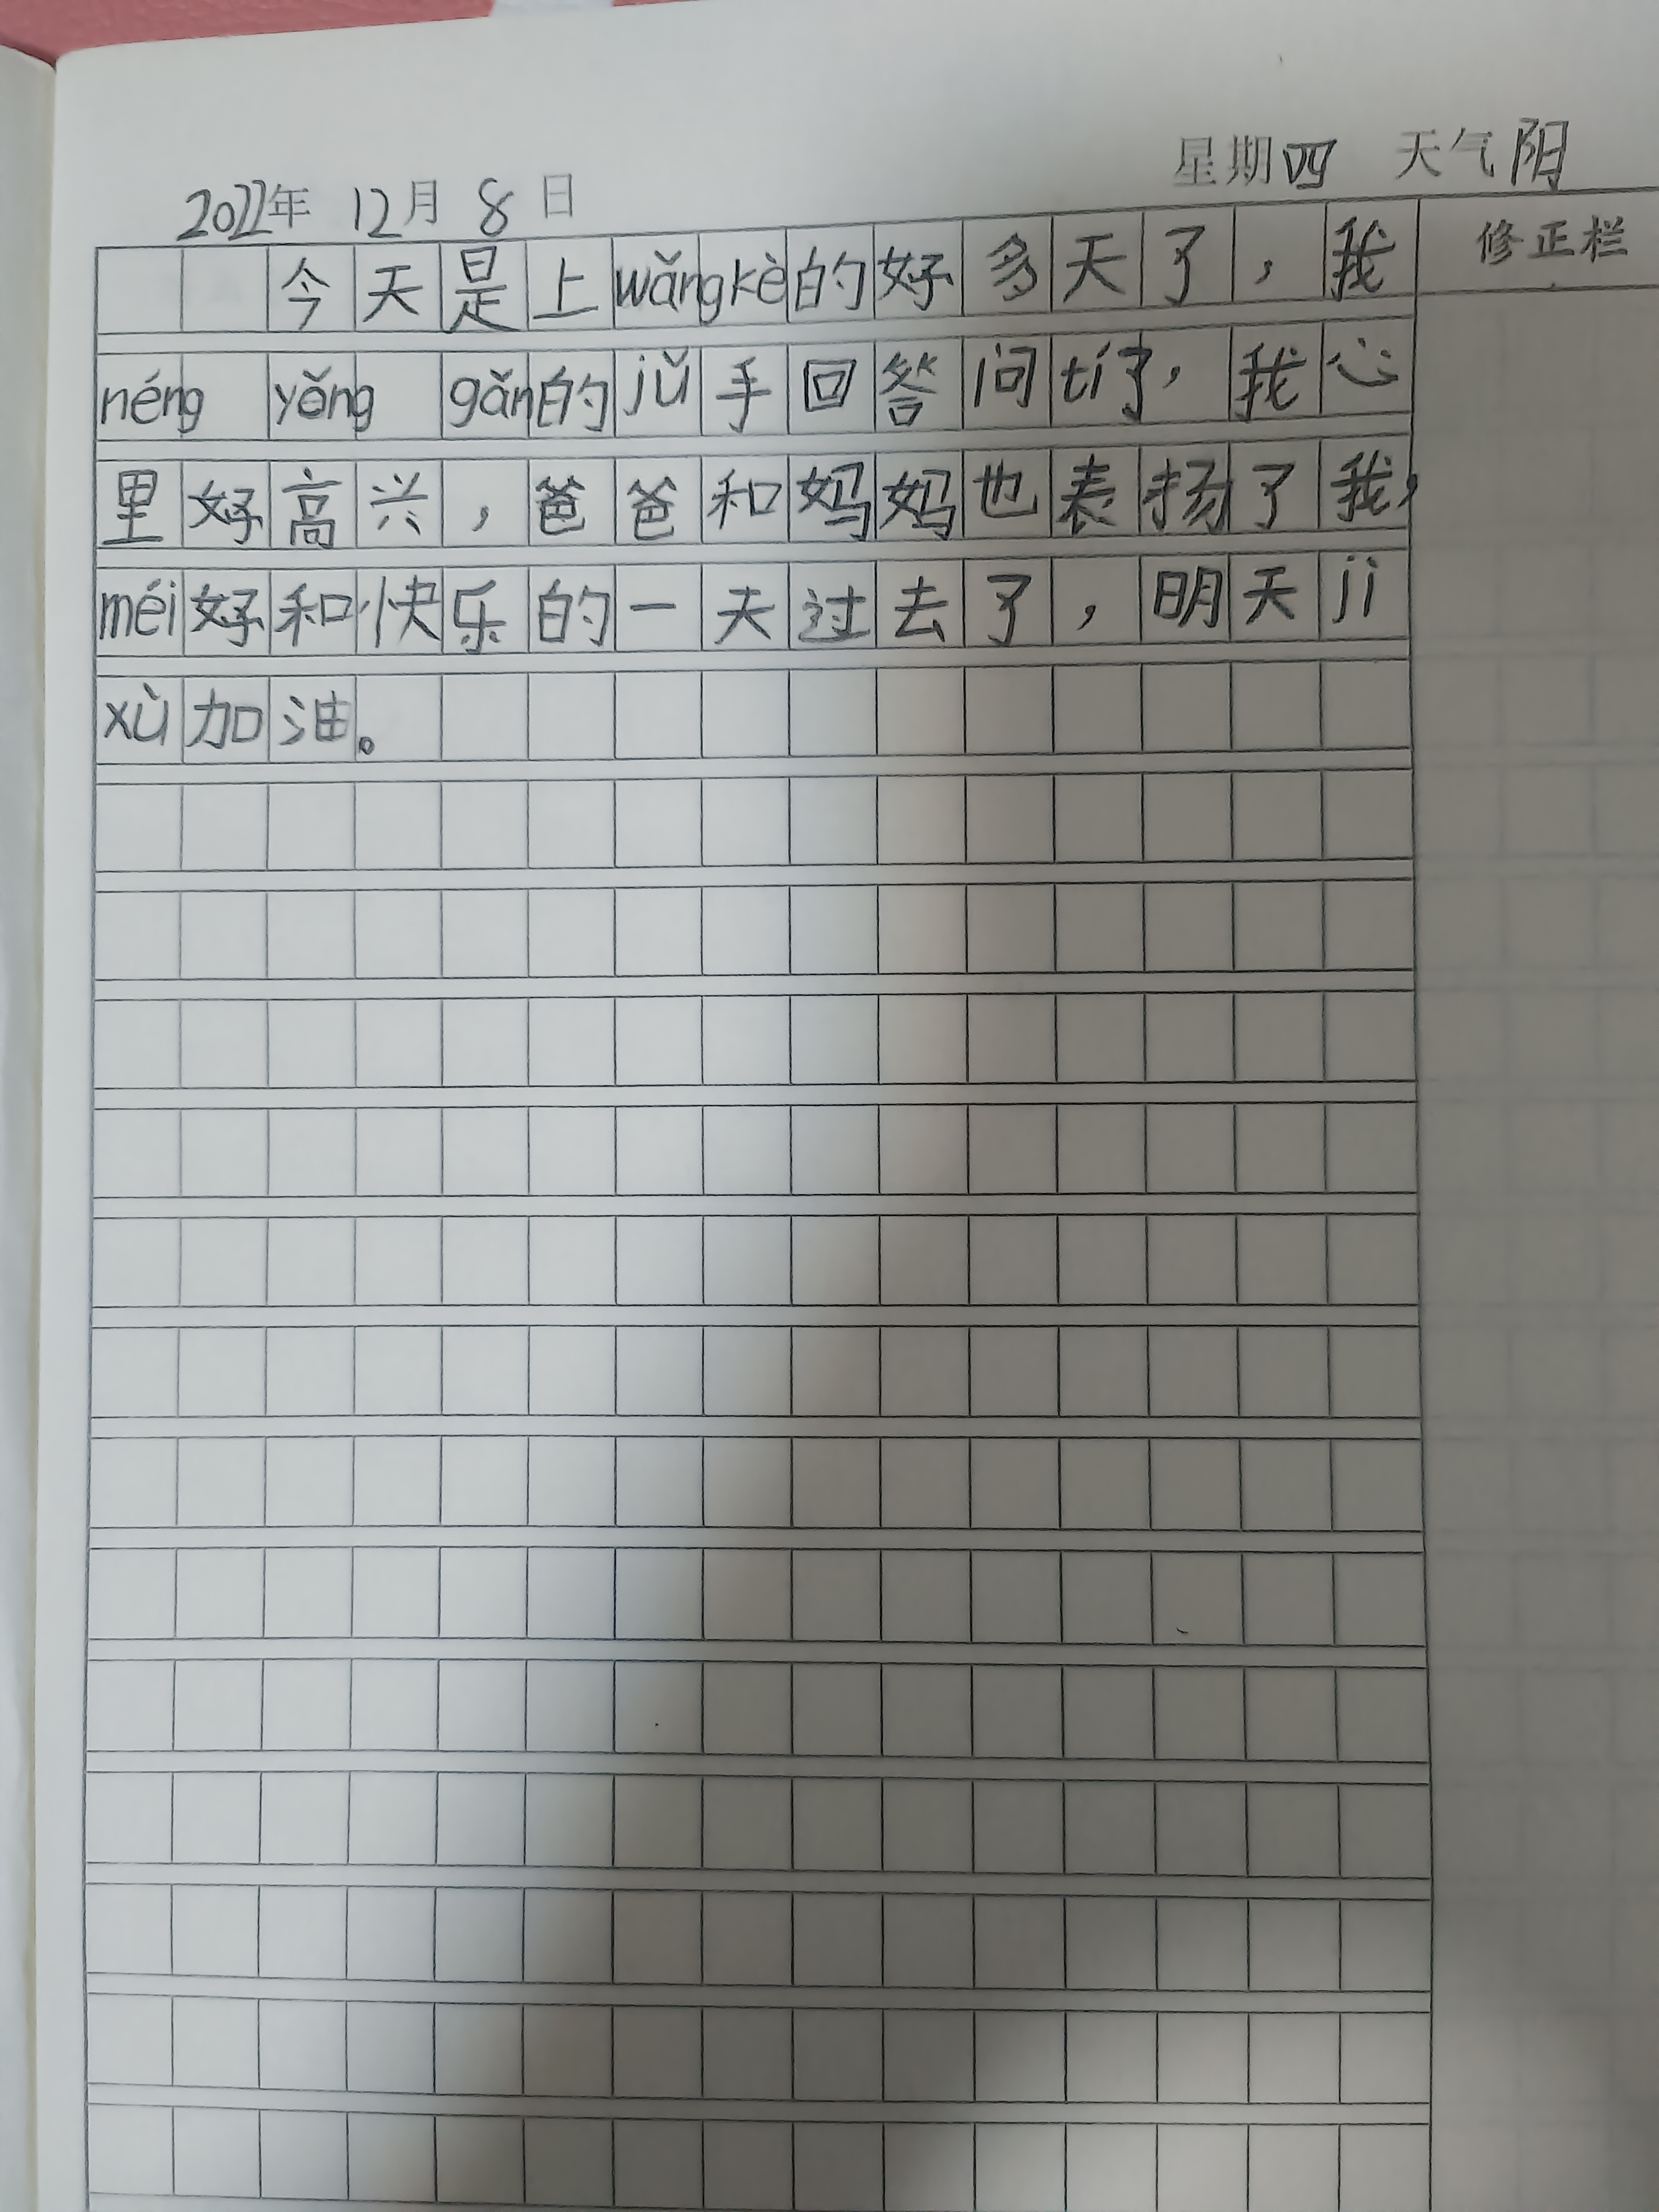 星期四 天气阳
2022年 12月 8日
修正栏
今天是上wǎngkè的好多天了，我
néng yǒng gǎn的jǔ手回答问tí了，我心
里好高兴，爸爸和妈妈也表扬了我，
méi好和快乐的一天过去了，明天ji
xù加油。